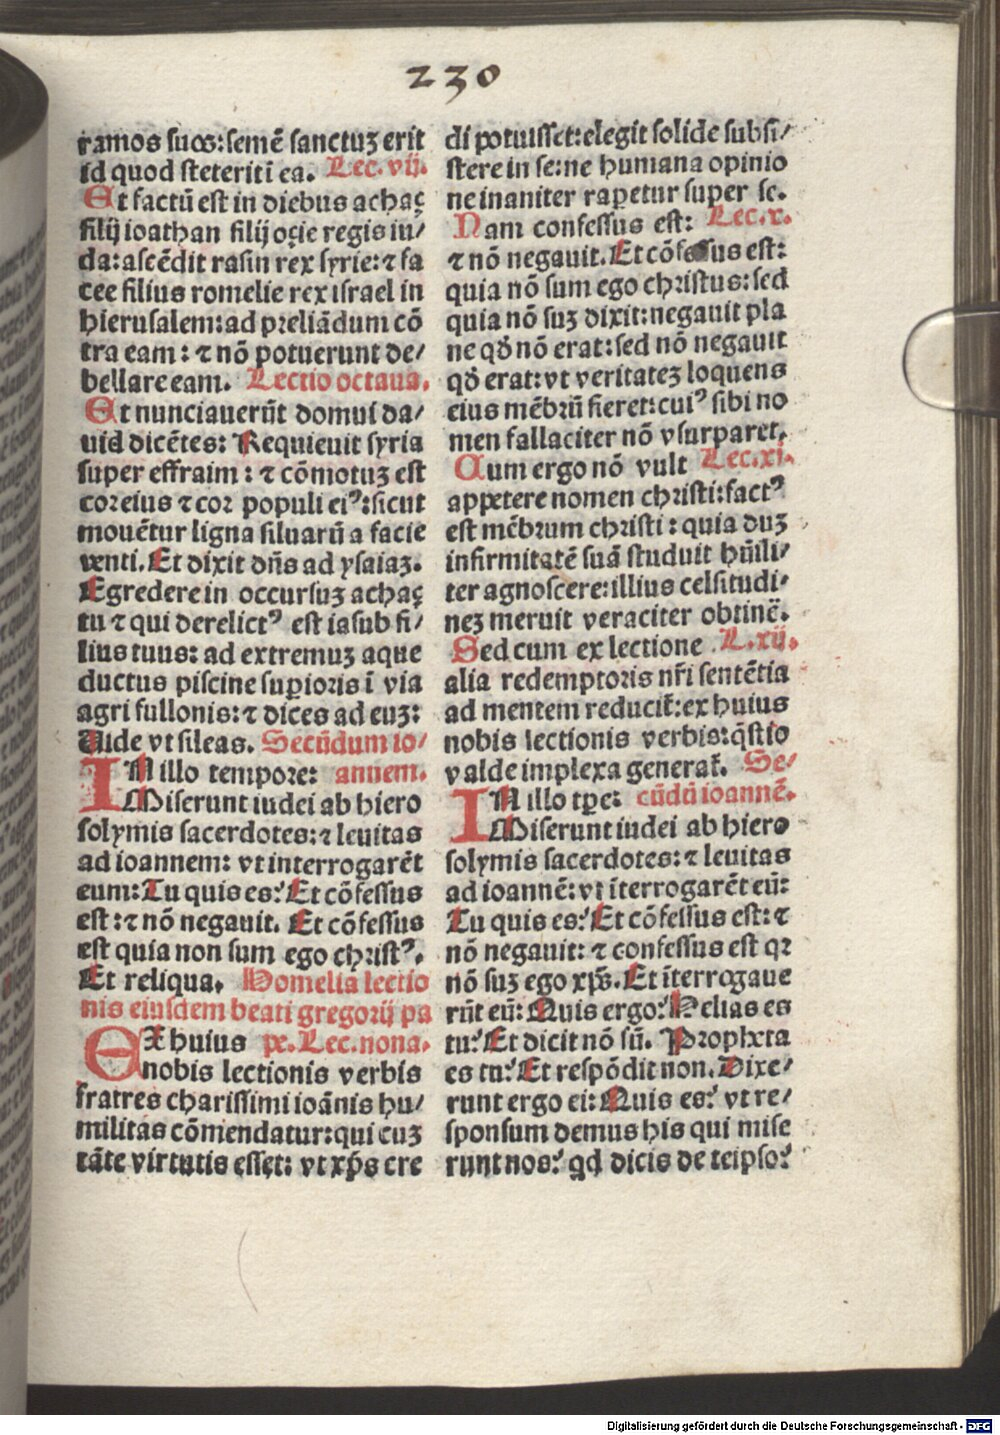 230
ramos suos: semē sanctuʒ erit
id quod steterit ī ea. Lec. vij.
Et factū est in diebus achaç
filij ioathan filij oçie regis iu/
da: ascēdit rasin rex syrie: ⁊ fa
cee filius romelie rex israel in
hierusalem: ad preliādum cō
tra eam: ⁊ nō potuerunt de/
bellare eam. Lectio octaua.
Et nunciauerūt domui da/
uid dicētes: Requieuit syria
super effraim: ⁊ cōmotuʒ est
cor eius ⁊ cor populi eiꝰ: sicut
mouētur ligna siluarū a facie
venti. Et dixit dn̄s ad ysaiaʒ.
Egredere in occursuʒ achaç
tu ⁊ qui derelictꝰ est iasub fi/
lius tuus: ad extremuʒ aque
ductus piscine superioris ī via
agri fullonis: ⁊ dices ad euʒ:
Uide vt sileas. Secūdum io/
IN illo tempore: annem.
Miserunt iudei ab hiero
solymis sacerdotes: ⁊ leuitas
ad ioannem: vt interrogarēt
eum: Tu quis es? Et cōfessus
est: ⁊ nō negauit. Et cōfessus
est quia non sum ego christꝰ.
Et reliqua. Homelia lectio
nis eiusdem beati gregorij pa
EX huius pe. Lec. nona.
nobis lectionis verbis
fratres charissimi ioānis hu/
militas cōmendatur: qui cuʒ
tāte virtutis esset: vt xp̄s cre
di potuisset: elegit solide subsi/
stere in se: ne humana opinio
ne inaniter raperetur super se.
Nam confessus est: Lec. x.
⁊ nō negauit. Et cōfessus est:
quia nō sum ego christus: sed
quia nō suʒ dixit: negauit pla
ne qđ nō erat: sed nō negauit
qđ erat: vt veritateʒ loquens
eius mēbrū fieret: cuiꝰ sibi no
men fallaciter nō vsurparet.
Cum ergo nō vult Lec. xi.
appetere nomen christi: factꝰ
est mēbrum christi: quia duʒ
infirmitatē suā studuit hūili/
ter agnoscere: illius celsitudi/
neʒ meruit veraciter obtinē.
Sed cum ex lectione L. xij.
alia redemptoris nr̄i sentētia
ad mentem reducit̃: ex huius
nobis lectionis verbis: q̄stio
valde implexa generat̃. Se/
IN illo tp̄e: cūdū ioannē.
Miserunt iudei ab hiero
solymis sacerdotes: ⁊ leuitas
ad ioannē: vt īterrogarēt eū:
Tu quis es? Et cōfessus est: ⁊
nō negauit: ⁊ confessus est qꝛ
nō suʒ ego xp̄s. Et īterrogaue
rūt eū: Quis ergo? Helias es
tu? Et dicit nō sū. Propheta
es tu? Et respōdit non. Dixe/
runt ergo ei: Quis es? vt re/
sponsum demus his qui mise
runt nos? qd dicis de teipso?
Digitalisierung gefördert durch die Deutsche Forschungsgemeinschaft - DFG